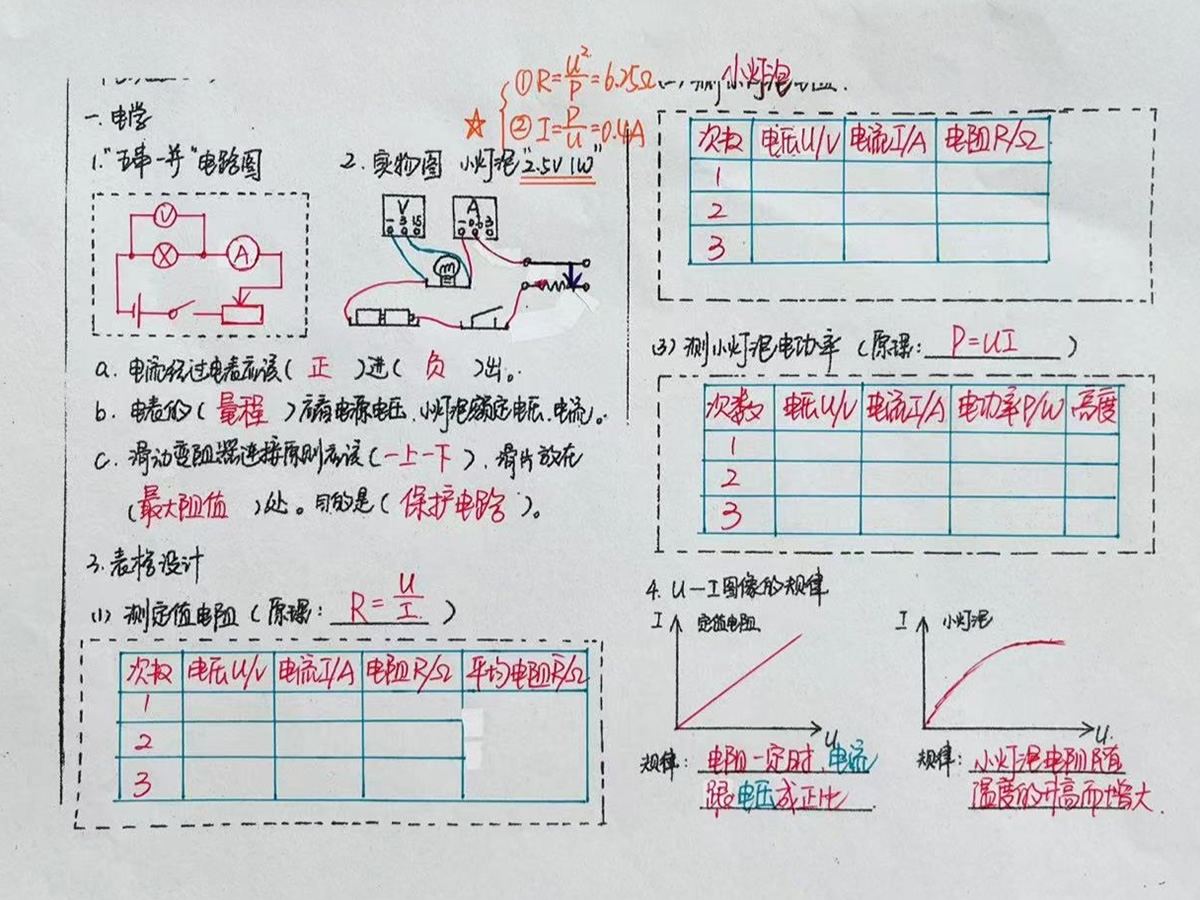 一、电学
1."五串一并"电路图
V
A
2. 实物图 小灯泡"2.5V 1W"
☆
① R=U²/P=6.25Ω
② I=P/U=0.4A
V
- 3 15
A
- 0.6 3
a. 电流经过电表应该( 正 )进( 负 )出。
b. 电表的( 量程 )应看电源电压、小灯泡额定电压、电流。
c. 滑动变阻器连接原则应该(一上一下)、滑片放在
(最大阻值 )处。目的是( 保护电路 )。
3. 表格设计
(1) 测定值电阻 (原理: R=U/I )
次数 电压U/V 电流I/A 电阻R/Ω 平均电阻R/Ω
1
2
3
小灯泡
次数 电压U/V 电流I/A 电阻R/Ω
1
2
3
(3) 测小灯泡电功率 (原理: P=UI )
次数 电压U/V 电流I/A 电功率P/W 亮度
1
2
3
4. U-I图像的规律
I 定值电阻
U
规律: 电阻一定时、电流
跟电压成正比
I 小灯泡
U
规律: 小灯泡电阻随
温度的升高而增大.